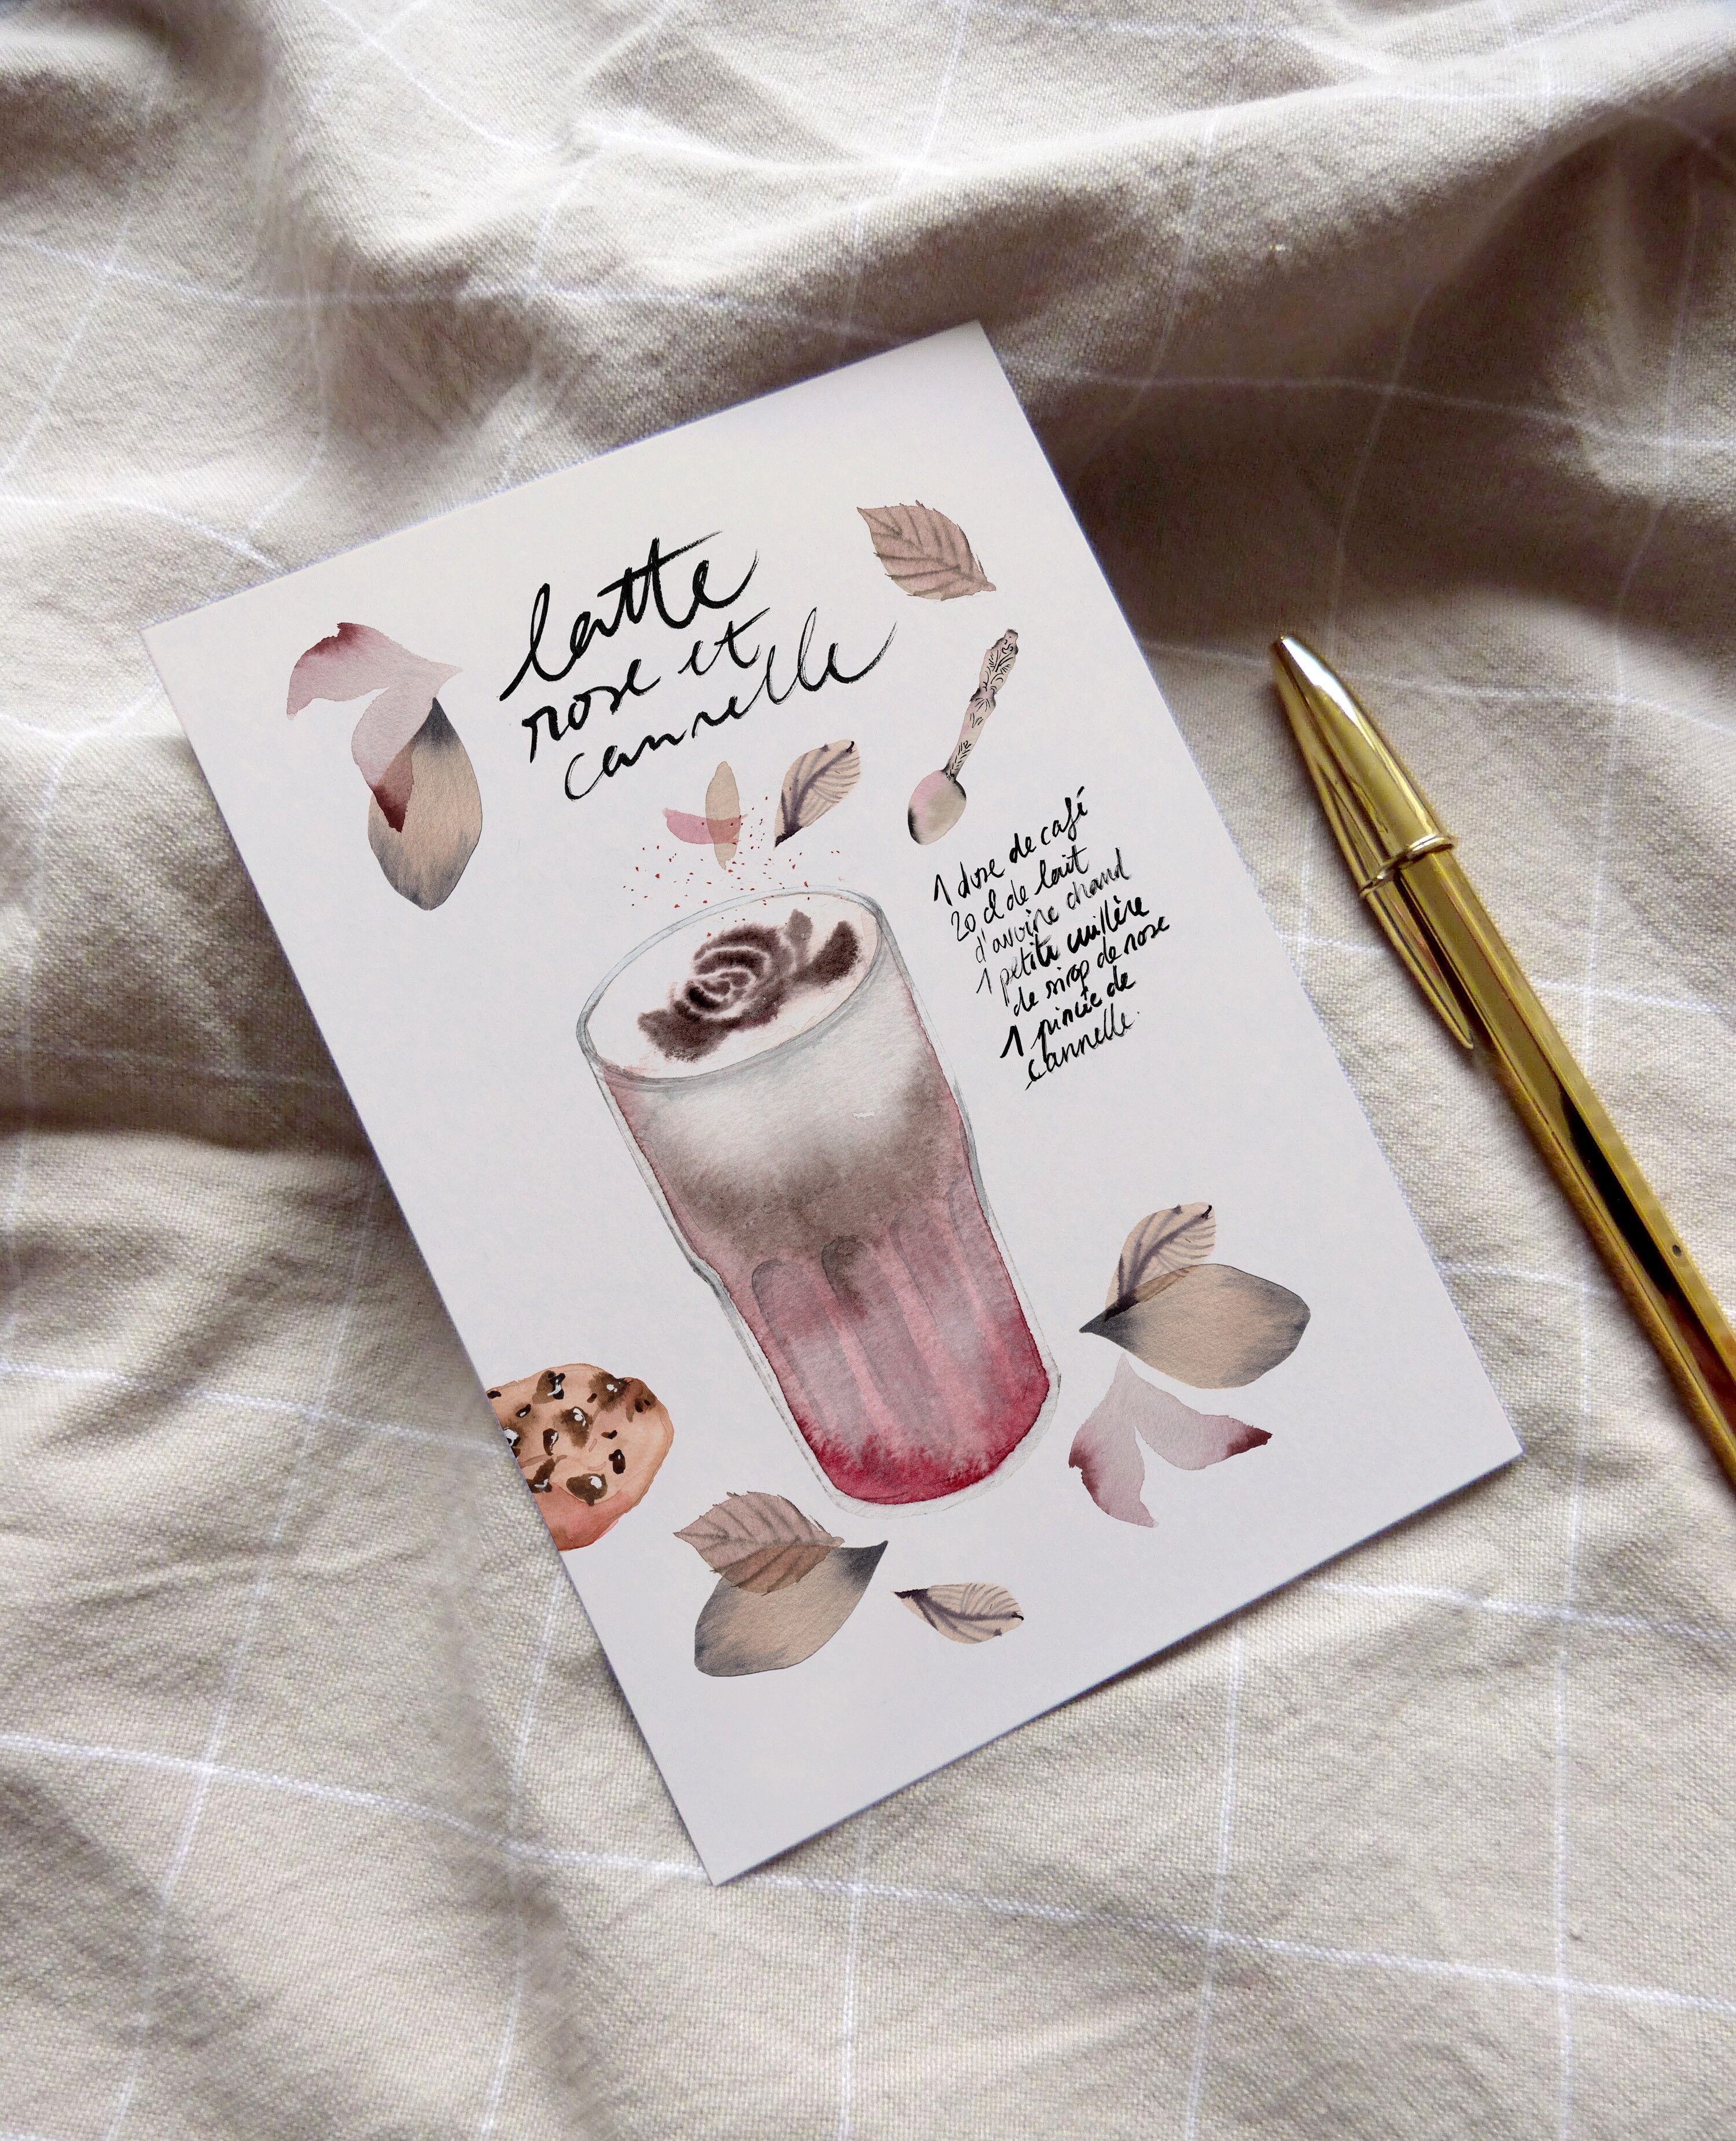 latte
rose et
cannelle
1 dose de café
20 cl de lait
d'avoine chaud
1 petite cuillère
de sirop de rose
1 pincée de
cannelle.